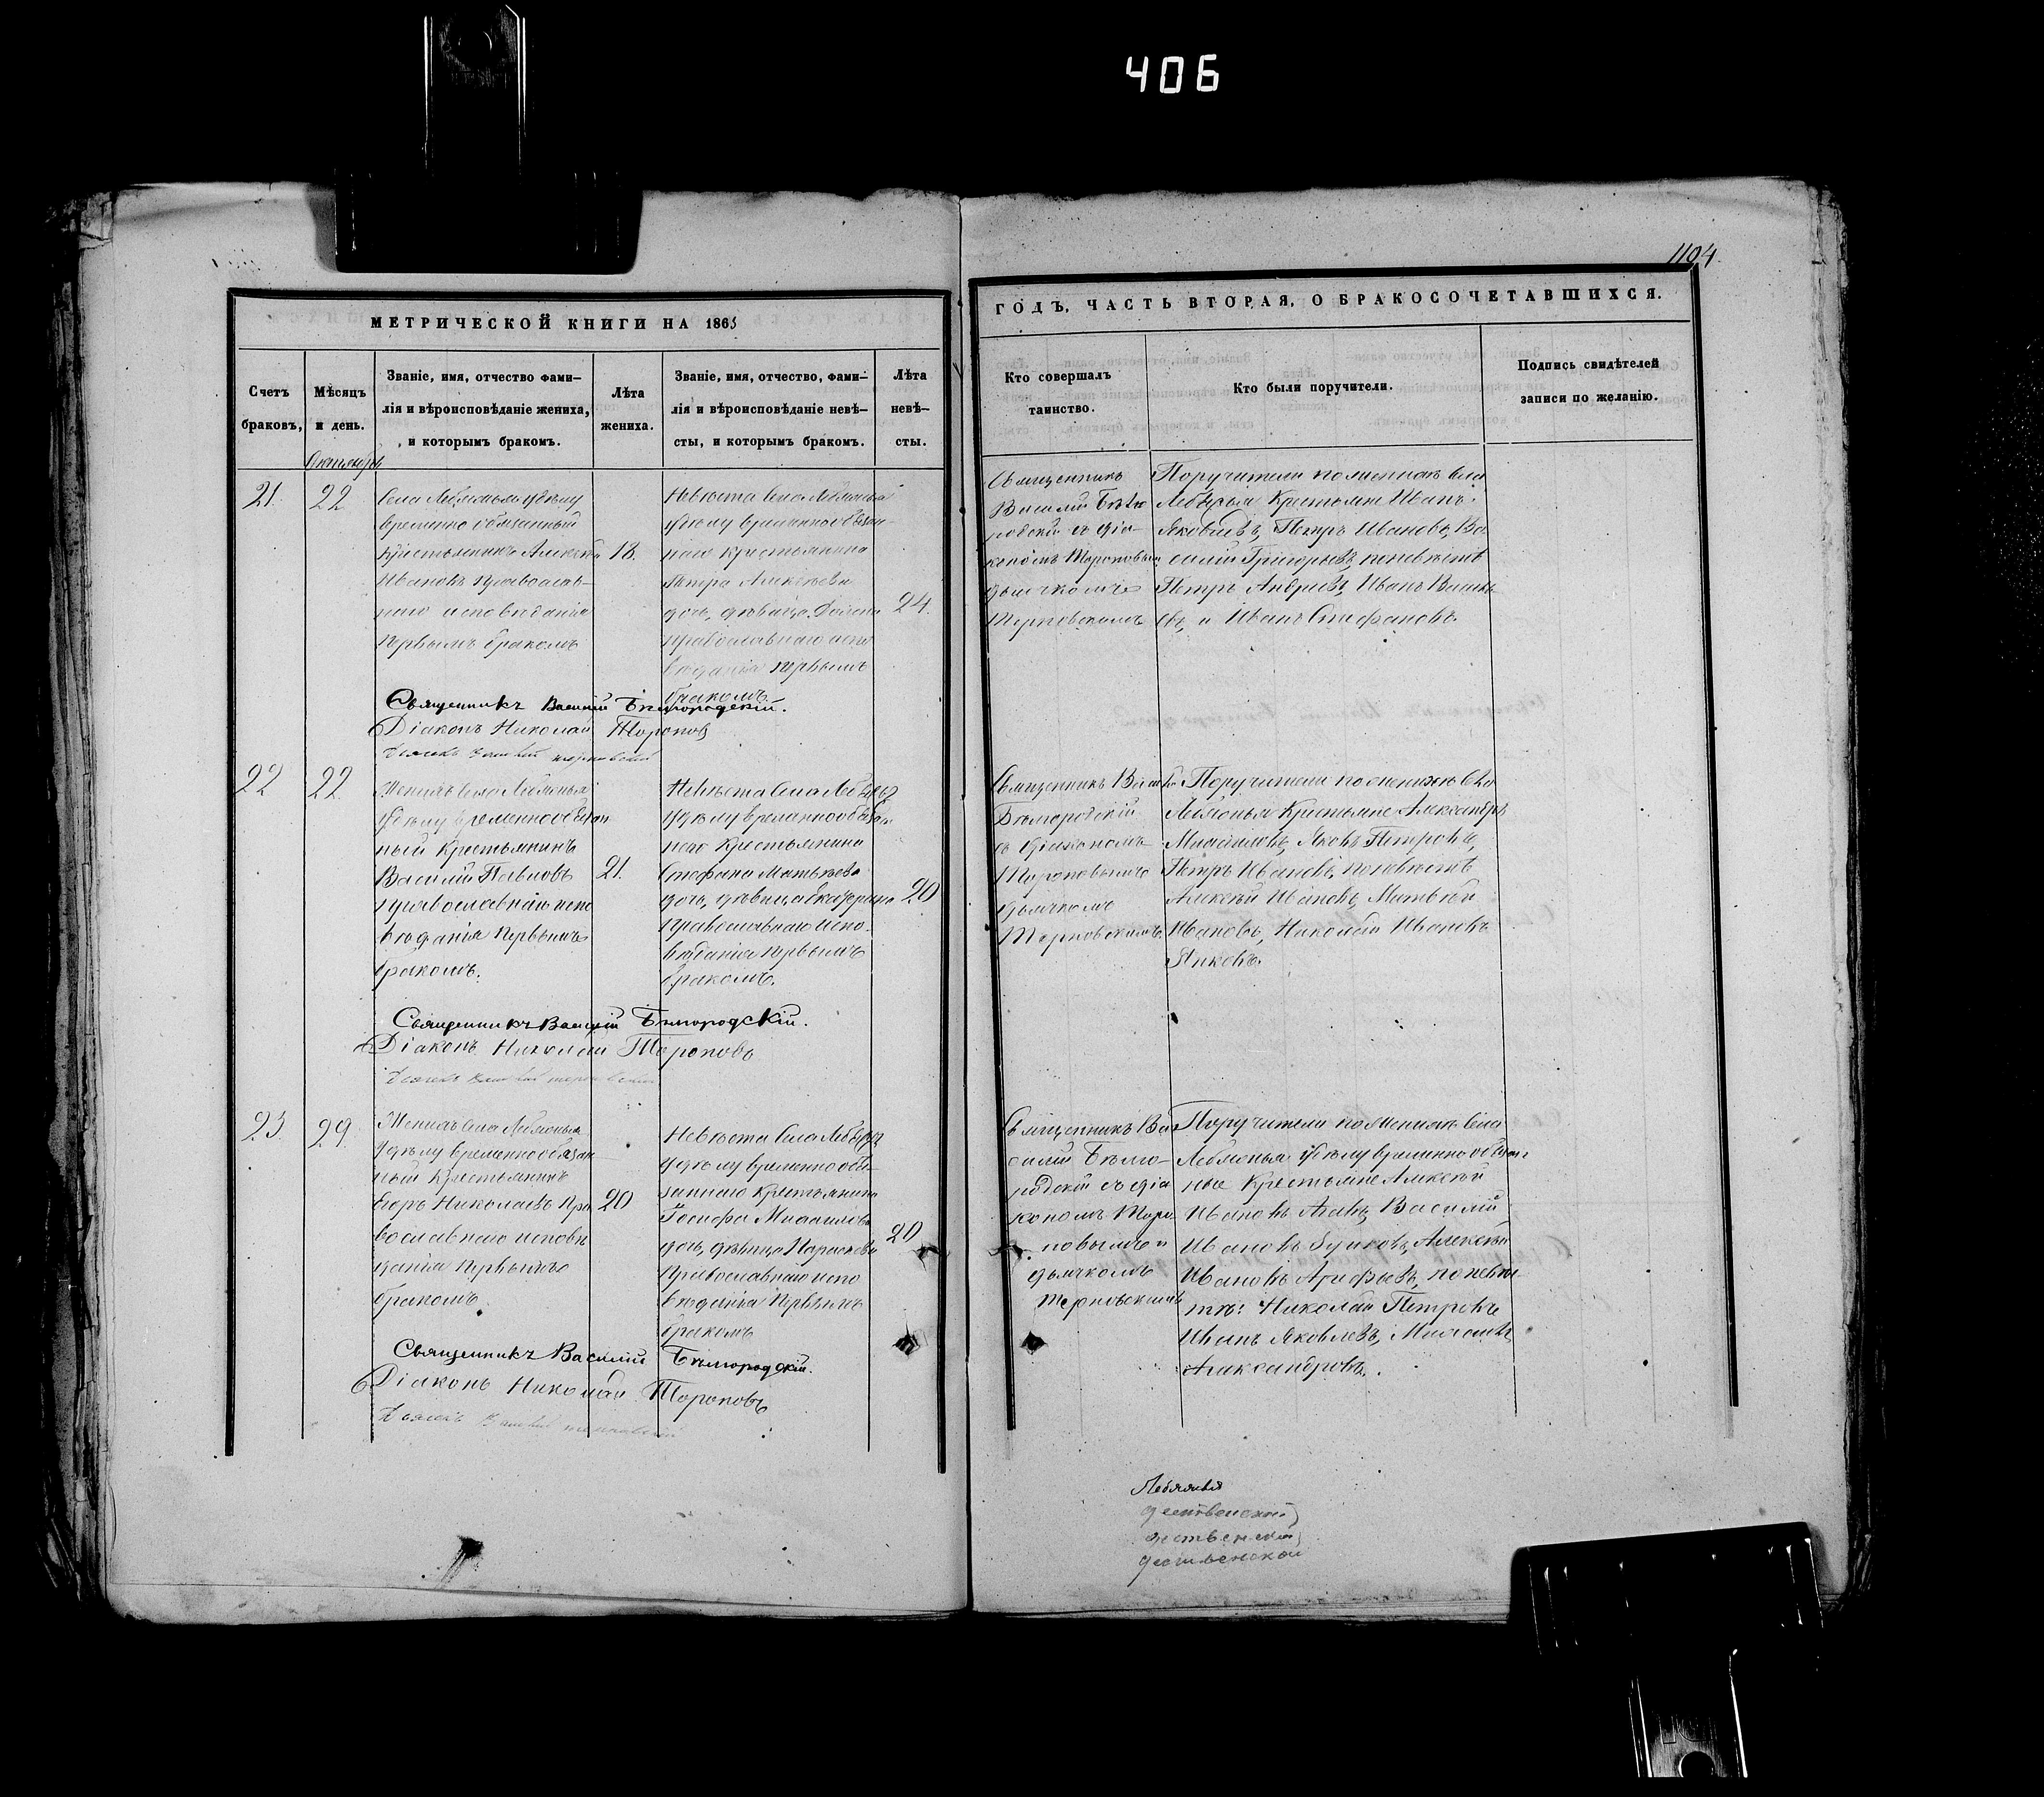 406
1194
МЕТРИЧЕСКОЙ КНИГИ НА 1865
ГОДЪ, ЧАСТЬ ВТОРАЯ, О БРАКОСОЧЕТАВШИХСЯ.
Счетъ браковъ,
Мѣсяцъ и день.
Званіе, имя, отчество фами-
лія и вѣроисповѣданіе жениха,
и которымъ бракомъ.
Лѣта жениха.
Званіе, имя, отчество, фами-
лія и вѣроисповѣданіе невѣ-
сты, и которымъ бракомъ.
Лѣта невѣ-
сты.
Кто совершалъ
таинство.
Кто были поручители.
Подпись свидѣтелей
записи по желанію.
Октябрь
21.
22
Села Лебяжья удѣлу
временно обязанный
крестьянинъ Алексѣй
Ивановъ православ-
наго исповѣданія
первымъ бракомъ
18.
Невѣста села Лебяжья
удѣлу временнообязан-
наго крестьянина
Петра Алексѣева
дочь, дѣвица
православнаго испо
вѣданія первымъ
бракомъ
24.
Священникъ
Василій Бѣлго
родскій съ діа-
кономъ Тороповымъ
дьячкомъ
Терновскимъ
Поручители по женихѣ села
Лебяжья крестьяне Иванъ
Яковлевъ, Петръ Ивановъ, Ва
силій Григорьевъ, по невѣстѣ
Петръ Андреевъ, Иванъ
и Иванъ Стефановъ.
Священникъ Василій Бѣлгородскій.
Діаконъ Николай Тороповъ
22
22
Женихъ села Лебяжья
удѣлу временнообязан
ный крестьянинъ
Василій Павловъ
православнаго испо
вѣданія первымъ
бракомъ.
21.
Невѣста села
удѣлу временнообязан
наго крестьянина
Стефана Матвѣева
дочь, дѣвица Екатерина
православнаго испо-
вѣданія первымъ
бракомъ.
20
Священникъ Василій
Бѣлгородскій
съ діакономъ
Тороповымъ
дьячкомъ
Терновскимъ
Поручители по женихѣ села
Лебяжья крестьяне Александръ
Михайловъ, Яковъ Петровъ,
Петръ Ивановъ, по невѣстѣ
Алексѣй Ивановъ, Матвѣй
Ивановъ, Николай Ивановъ
Священникъ Василій Бѣлгородскій.
Діаконъ Николай Тороповъ
23.
29.
Женихъ села Лебяжья
удѣлу временнообязан
ный крестьянинъ
Егоръ Николаевъ пра
вославнаго исповѣ
данія первымъ
бракомъ.
20
Невѣста села
удѣлу временно обя-
заннаго крестьянина
Іосифа Михайлова
дочь, дѣвица Параскева
православнаго испо
вѣданія первымъ
бракомъ
20
Священникъ Ва
силій Бѣлго-
родскій съ діа
кономъ Торо
повымъ и
дьячкомъ
Терновскимъ
Поручители по женихѣ села
Лебяжья удѣлу временно обязан
ные крестьяне Алексѣй
Ивановъ Василій
Ивановъ Алексѣй
Ивановъ по невѣс-
тѣ: Николай Петровъ
Иванъ Яковлевъ, Михаилъ
Александровъ.
Священникъ Василій Бѣлгородскій.
Діаконъ Николай Тороповъ
Лебяжья